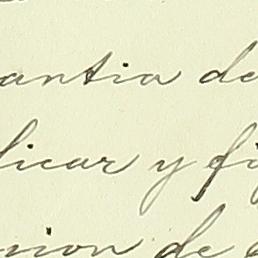 antia de
licar y fi
nion de